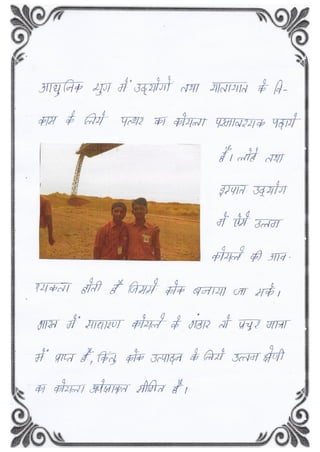 आधुनिक युग में उद्योगो तथा यातायात के वि-
कास के लिये पत्थर का कोयला परमावश्यक पदार्थ
है। लोहे तथा
इस्पात उद्योग
में ऐसे उत्तम
कोयले की आव-
श्यकता होती है जिससे कोक बनाया जा सके।
भारत में साधारण कोयले के भंडार तो प्रचुर मात्रा
में प्राप्त है, किंतु कोक उत्पादन के लिये उत्तम श्रेणी
का कोयला अपेक्षाकृत सीमित है।